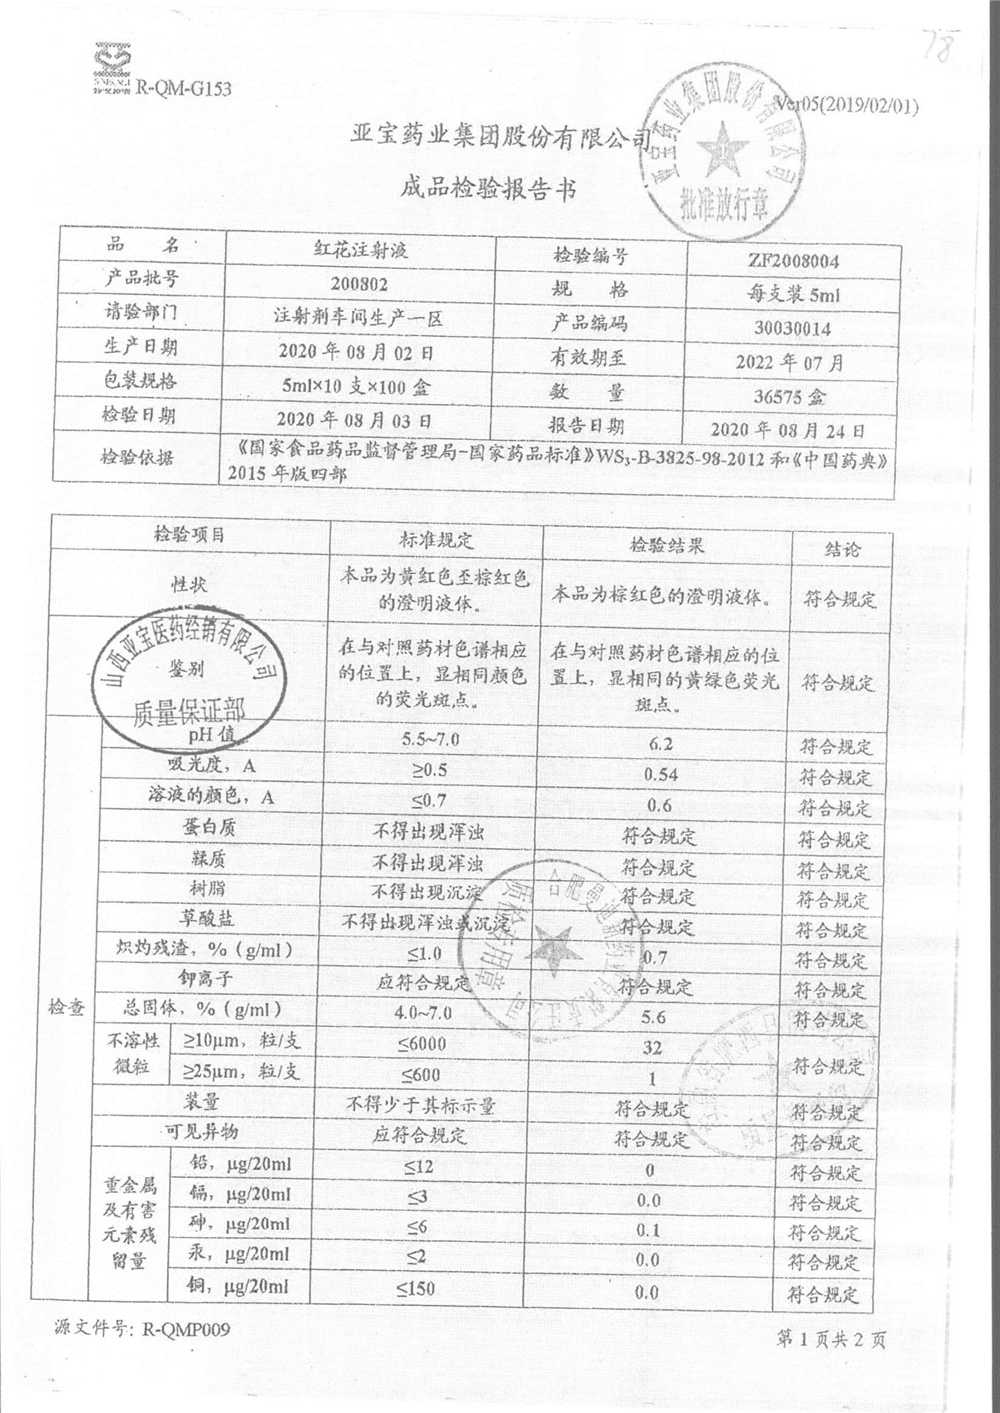 78
R-QM-G153
Ver05(2019/02/01)
亚宝药业集团股份有限公司
成品检验报告书
亚宝药业集团股份有限公司
批准放行章
品 名 红花注射液 检验编号 ZF2008004
产品批号 200802 规 格 每支装 5ml
请验部门 注射剂车间生产一区 产品编码 30030014
生产日期 2020 年 08 月 02 日 有效期至 2022 年 07 月
包装规格 5ml×10 支×100 盒 数 量 36575 盒
检验日期 2020 年 08 月 03 日 报告日期 2020 年 08 月 24 日
检验依据 《国家食品药品监督管理局-国家药品标准》WS₃-B-3825-98-2012 和《中国药典》
2015 年版四部
检验项目 标准规定 检验结果 结论
性状 本品为黄红色至棕红色
的澄明液体。 本品为棕红色的澄明液体。 符合规定
鉴别 在与对照药材色谱相应
的位置上，显相同颜色
的荧光斑点。 在与对照药材色谱相应的位
置上，显相同的黄绿色荧光
斑点。 符合规定
山西亚宝医药经销有限公司
质量保证部
检查
pH 值 5.5~7.0 6.2 符合规定
吸光度，A ≥0.5 0.54 符合规定
溶液的颜色，A ≤0.7 0.6 符合规定
蛋白质 不得出现浑浊 符合规定 符合规定
鞣质 不得出现浑浊 符合规定 符合规定
树脂 不得出现沉淀 符合规定 符合规定
草酸盐 不得出现浑浊或沉淀 符合规定 符合规定
炽灼残渣，%（g/ml） ≤1.0 0.7 符合规定
钾离子 应符合规定 符合规定 符合规定
总固体，%（g/ml） 4.0~7.0 5.6 符合规定
不溶性
微粒
≥10μm，粒/支 ≤6000 32 符合规定
≥25μm，粒/支 ≤600 1
装量 不得少于其标示量 符合规定 符合规定
可见异物 应符合规定 符合规定 符合规定
重金属
及有害
元素残
留量
铅，μg/20ml ≤12 0 符合规定
镉，μg/20ml ≤3 0.0 符合规定
砷，μg/20ml ≤6 0.1 符合规定
汞，μg/20ml ≤2 0.0 符合规定
铜，μg/20ml ≤150 0.0 符合规定
质检专用章
源文件号: R-QMP009
第 1 页共 2 页